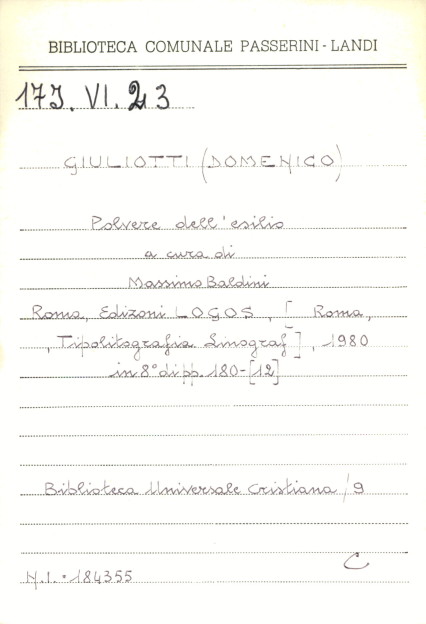 BIBLIOTECA COMUNALE PASSERINI - LANDI
173. VI. 23
GIULIOTTI (DOMENICO)
Polvere dell'esilio
a cura di
Massimo Baldini
Roma, Edizoni LOGOS, [ Roma,
, Tipolitografia Linograf ] , 1980
in 8° di pp. 180-[12]
Biblioteca Universale Cristiana / 9
C
N.I. • 184355